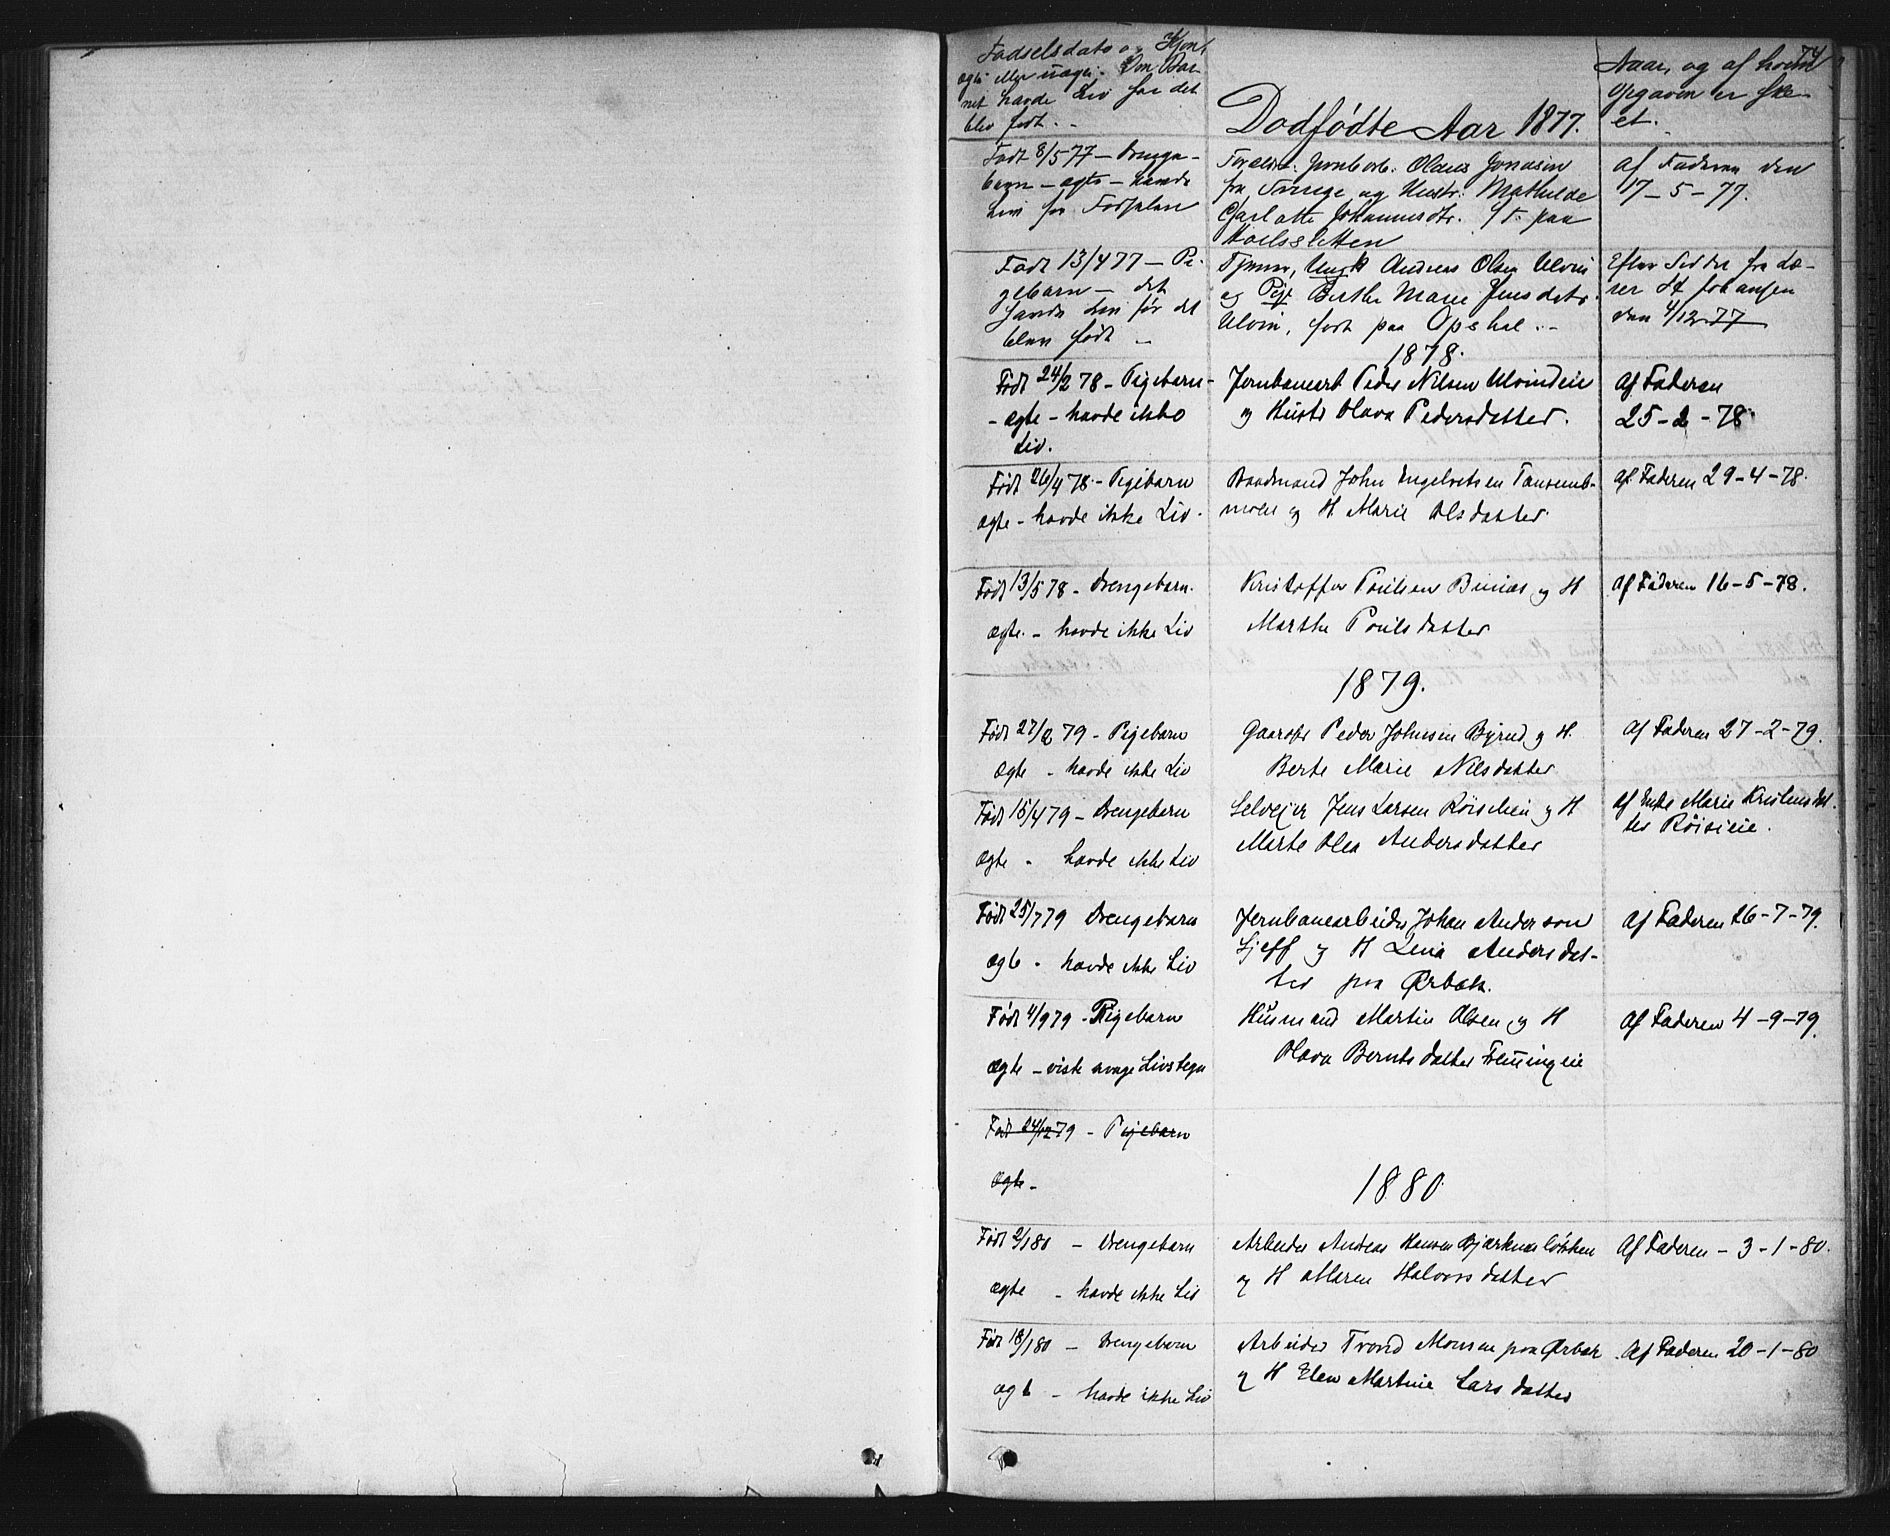 74
Fødselsdato og Kjøn,
ægte eller uægte. Om Bar-
net havde Liv før det
blev født. -
Dødfødte Aar 1877.
Naar, og af hvem
Opgaven er ske-
et.
Født 8/5 77 - Drenge-
barn - ægte - havde
Liv før Fødselen
Forældre: Jernbarb. Olaus Jonasen
fra Sverige og Hustr: Mathilde
Charlotte Johannesdtr. f. paa
Af Faderen den
17-5-77.
Født 13/4 77 - Pi-
gebarn - det
havde Liv før det
blev født -
Tjener, Ungk Andreas Olsen Ulvin
og Pige Berthe Marie Jensdatr.
Ulvin, født paa Opshal. -
Efter Seddel fra Læ-
rer Johansen
den 4/12 77
1878.
Født 24/2 78 - Pigebarn -
- ægte - havde ikke
Liv.
Jernbanearb Peder Nilsen Ulvindeie
og Hustr Olava Pedersdatter.
Af Faderen
25-2-78
Født 26/4 78 - Pigebarn
ægte - havde ikke Liv.
Baadmand John Engelretsen
moen og H. Marie Olsdatter.
Af Faderen 29-4-78.
Født 13/5 78 - Drengebarn.
ægte. - havde ikke Liv
Kristoffer Poulsen og H
Marthe Poulsdatter
Af Faderen 16-5-78.
1879.
Født 27/2 79 - Pigebarn
ægte - havde ikke Liv
Gaardbr Peder Johnsen Byrud og H.
Berte Marie Nilsdatter
Af Faderen 27-2-79.
Født 15/4 79 - Drengebarn
ægte - havde ikke Liv
Selveier Jens Larsen og H
Marte Olea Andersdatter
Af Enke Marie Kristensdat-
ter Røiseie.
Født 25/7 79 Drengebarn
ægte - havde ikke Liv
Jernbanearbeider Johan Anderson
og H Lina Andersdat-
ter paa Ørbæk.
Af Faderen 26-7-79.
Født 4/9 79 - Pigebarn
ægte - viste svage Livstegn
Husmand Martin Olsen og H
Olava Berntsdatter
Af Faderen 4-9-79.
Født 24/12 79 - Pigebarn
ægte -
1880
Født 2/1 80 - Drengebarn
ægte - havde ikke Liv
Arbeider Andreas Hansen Bjærknesløkken
og H Maren Halvorsdatter
Af Faderen - 3-1-80.
Født 18/1 80 - Drengebarn
ægte - havde ikke Liv
Arbeider Trond Monsen paa Ørbæk
og H Elen Martine Larsdatter
Af Faderen 20-1-80